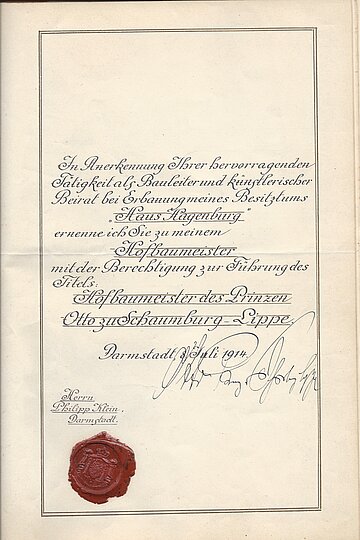 In Anerkennung Ihrer hervorragenden
Tätigkeit als Bauleiter und künstlerischer
Beirat bei Erbauung meines Besitztums
"Haus Hagenburg"
ernenne ich Sie zu meinem
Hofbaumeister
mit der Berechtigung zur Führung des
Titels:
Hofbaumeister des Prinzen
Otto zu Schaumburg-Lippe.
Darmstadt, Juli 1914.
Herrn
Philipp Klein,
Darmstadt.